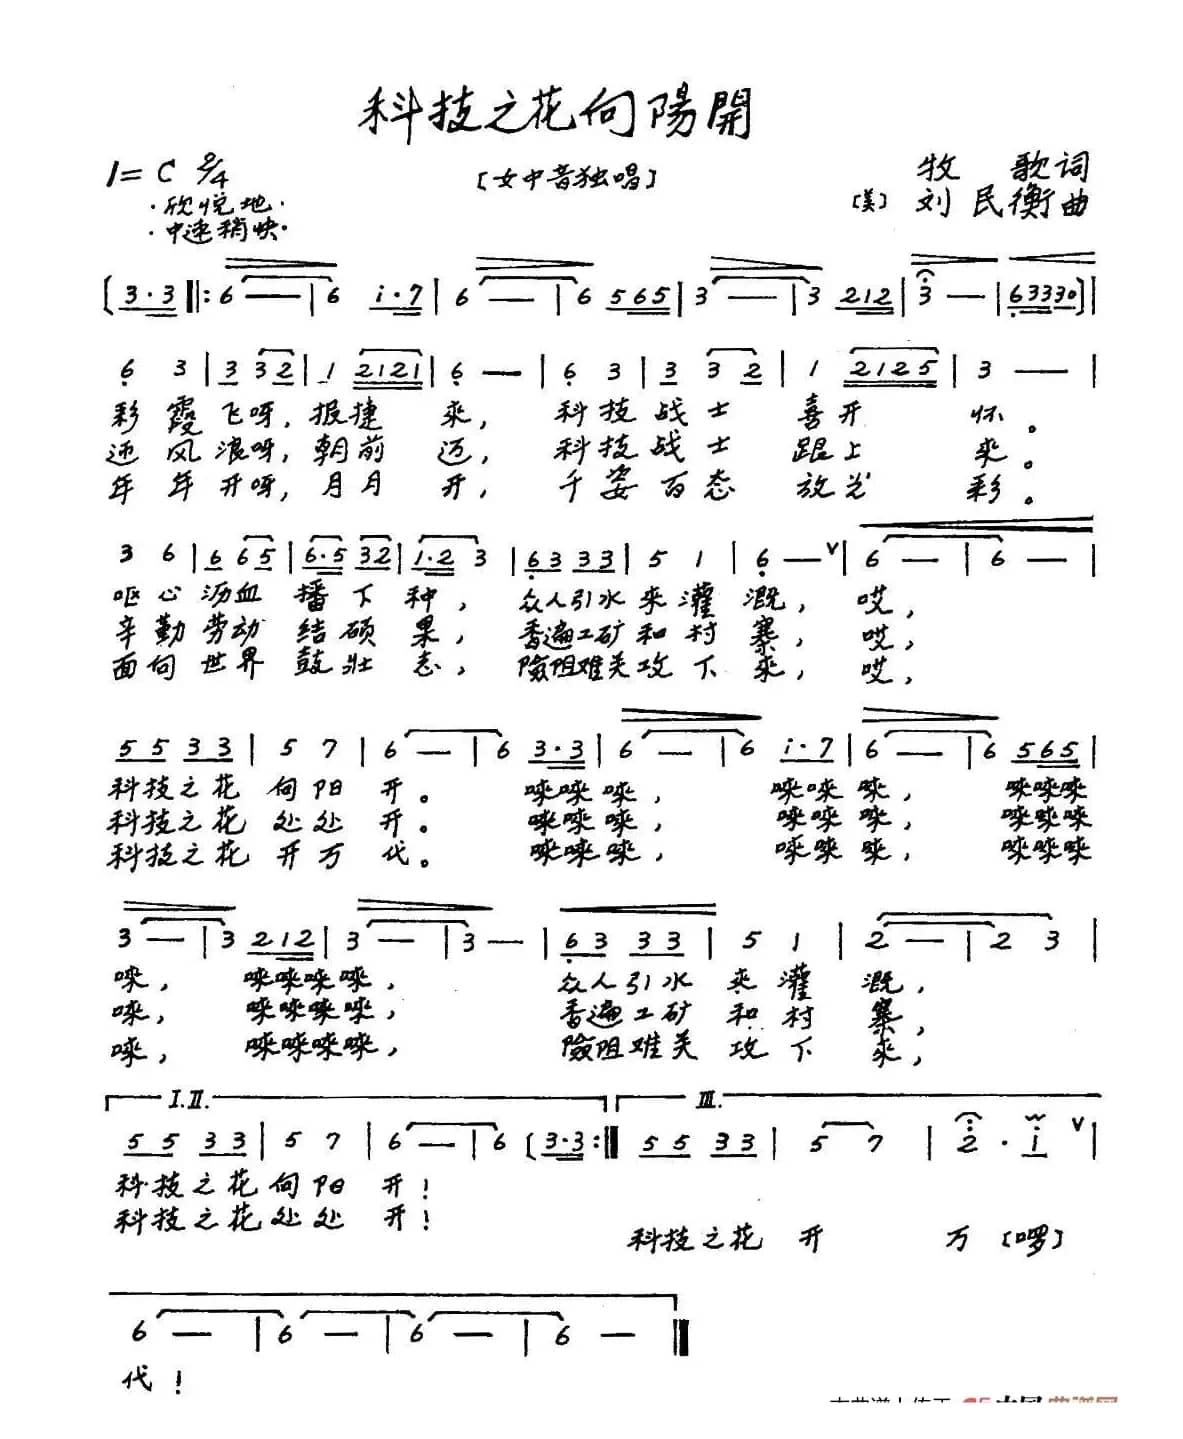 科技之花向陽開
1=C 2/4 [女中音独唱] 牧 歌词
·欣悦地· [美] 刘民衡曲
·中速稍快·
(3·3 ‖: 6 — | 6 i·7 | 6 — | 6 565 | 3 — | 3 212 | 3 — | 63330) |
6 3 | 3 32 | 1 2121 | 6 — | 6 3 | 3 3 2 | 1 2125 | 3 — |
彩霞飞呀,报捷 来, 科技战士 喜开 怀。
迎风浪呀,朝前 迈, 科技战士 跟上 来。
年年开呀,月月 开, 千姿百态 放光 彩。
3 6 | 6 65 | 6·5 32 | 1·2 3 | 63 33 | 5 1 | 6 — ∨ | 6 — | 6 — |
呕心沥血 播下种, 众人引水来灌溉, 哎,
辛勤劳动 结硕果, 香遍工矿和村寨, 哎,
面向世界 鼓壮志, 險阻难关攻下来, 哎,
55 33 | 5 7 | 6 — | 6 3·3 | 6 — | 6 i·7 | 6 — | 6 565 |
科技之花 向阳 开。 唻唻唻, 唻唻唻, 唻唻唻
科技之花 处处 开。 唻唻唻, 唻唻唻, 唻唻唻
科技之花 开万 代。 唻唻唻, 唻唻唻, 唻唻唻
3 — | 3 212 | 3 — | 3 — | 63 33 | 5 1 | 2 — | 2 3 |
唻, 唻唻唻唻, 众人引水 来灌 溉,
唻, 唻唻唻唻, 香遍工矿 和村 寨,
唻, 唻唻唻唻, 險阻难关 攻下 来,
I.II. III.
55 33 | 5 7 | 6 — | 6 (3·3 :‖ 55 33 | 5 7 | 2 · i ∨ |
科技之花向阳 开!
科技之花处处 开!
科技之花 开 万 [啰]
6 — | 6 — | 6 — | 6 — ‖
代!